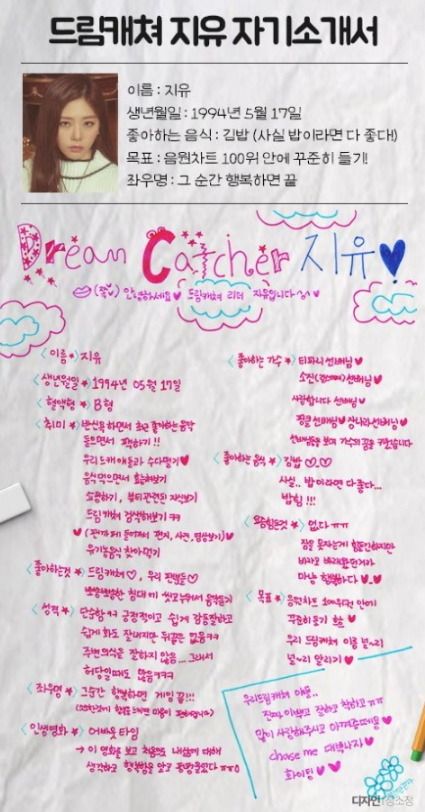 드림캐쳐 지유 자기소개서
이름 : 지유
생년월일 : 1994년 5월 17일
좋아하는 음식 : 김밥 (사실 밥이라면 다 좋다!)
목표 : 음원차트 100위 안에 꾸준히 들기!
좌우명 : 그 순간 행복하면 끝
Dream Catcher 지유♥
(쪽♥) 안녕하세요♥ 드림캐쳐 리더 지유입니다
<이름★> 지유
<생년월일★> 1994년 05월 17일
<혈액형★> B형
<취미★> 반신욕하면서 최근 즐겨듣는 음악
들으면서 편하기!!
우리 드캐 애들과 수다떨기♥
음식 먹으면서 효능해보기
쇼핑하기, 뷰티관련된 지식보기
드림캐쳐 검색해보기 ㅋㅋ
♥(팬카페 들어가서 편지, 사진, 영상보기)♥
유기농음식 찾아먹기
<좋아하는것★> 드림캐쳐♡, 우리 팬분들♡
뽀송뽀송한 침대에 누워서 음악듣기
<성격★> 단순함ㅋㅋ 긍정적이고 쉽게 감동잘하고
쉽게 화도 잘내지만 뒤끝은 없음ㅋㅋ
주변의식을 잘하지 않음... 그래서
허당일때도 많음ㅋㅋㅋ
<좌우명★> 그순간 행복하면 게임 끝!!!
<인생영화★> 어바웃 타임
→ 이 영화를 보고 처음으로 내삶에 대해
생각하고 행복함을 알고 눈물흘렸다 ㅠㅠㅇ
<좋아하는 가수★> 티파니 선배님♥
소진(걸스데이)선배님♥
사랑합니다 선배님♥
장나라선배님♥
선배님들을 보며 가수의 꿈을 키웠습니다
<좋아하는 음식★> 김밥 ♡.♡
사실.. 밥이라면 다좋다...
밥힘!!!
<요즘힘든것★> 없다ㅠㅠ
잠을 못자는게 힘들긴하지만
바라고 바래왔던거라
마냥 행복하다♥.♥
<목표★> 음원차트 100위권 안에
꾸준히 들기
우리 드림캐쳐 이름 널~리
널~리 알리기♥
우리드림캐쳐 애들..
진짜 이쁘고 잘하고 착하고 ㅠㅠ
많이 사랑해주시고 아껴주세용♥
chase me 대박나자♥
화이팅♥
디자인 : 정소정